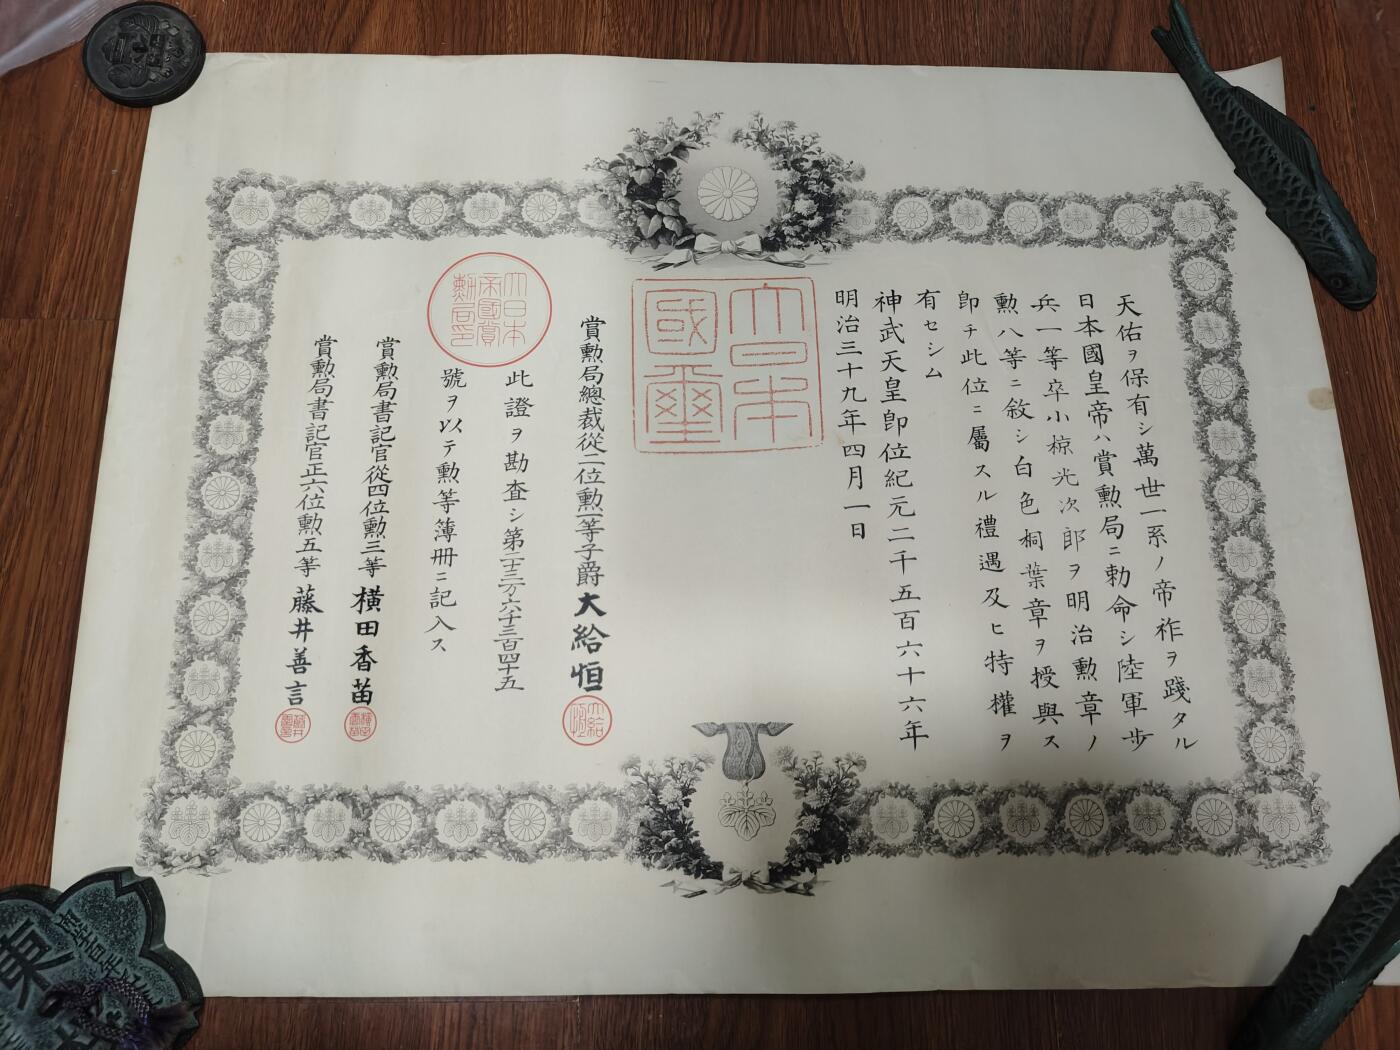 天佑ヲ保有シ萬世一系ノ帝祚ヲ踐タル
日本國皇帝ハ賞勲局ニ勅命シ陸軍步
兵一等卒小椋光次郎ヲ明治勲章ノ
勲八等ニ敘シ白色桐葉章ヲ授與ス
卽チ此位ニ屬スル禮遇及ヒ特權ヲ
有セシム
神武天皇卽位紀元二千五百六十六年
明治三十九年四月一日
大日本
國璽
賞勲局總裁從二位勲一等子爵大給恒
大給
恒
此證ヲ勘査シ第二十三万六千三百四十五
號ヲ以テ勲等簿冊ニ記入ス
大日本
帝國賞
勲局印
賞勲局書記官從四位勲三等橫田香苗
賞勲局書記官正六位勲五等藤井善言
東